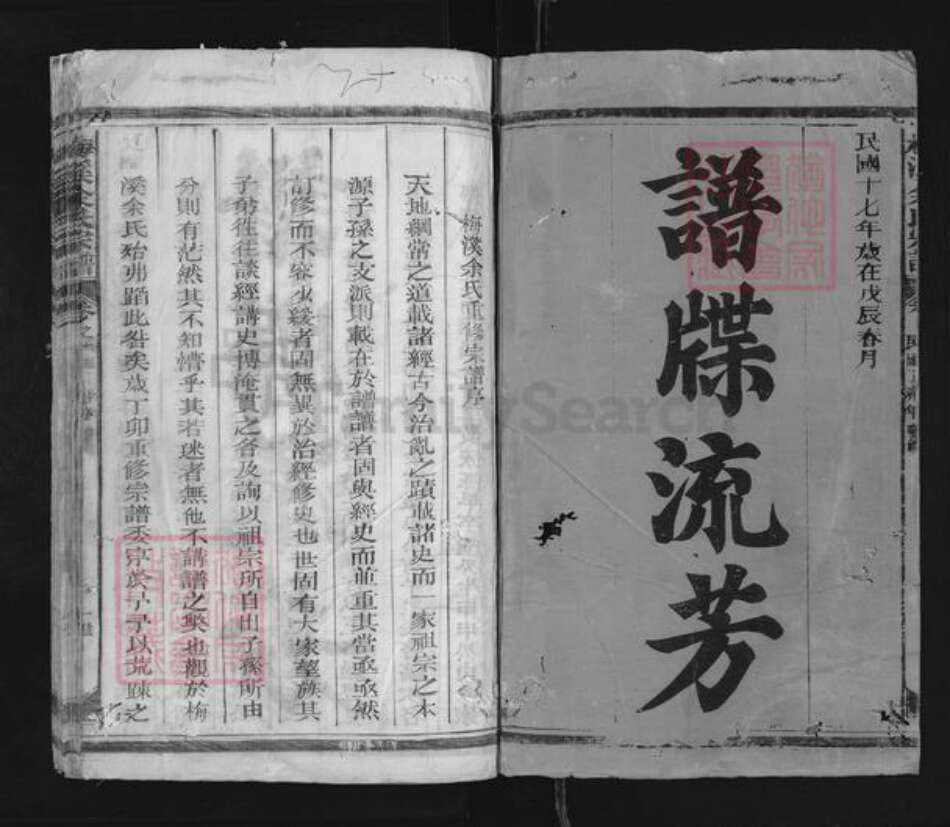 民國十七年歲在戊辰春月
譜牒流芳
梅溪余氏重修宗譜序
天地綱常之道載諸經古今治亂之蹟載諸史而一家祖宗之本
源子孫之支派則載在於譜譜者固與經史而並重其當亟亟然
訂修而不容少緩者固無異於治經修史也世固有大家望族其
子弟往往談經講史博淹貫之名及詢以祖宗所自出子孫所由
分則有茫然其不知懵乎其若迷者無他不講譜之獘也觀於梅
溪余氏殆弗蹈此咎矣歲丁卯重修宗譜委序於予予以荒踈之
FamilySearch